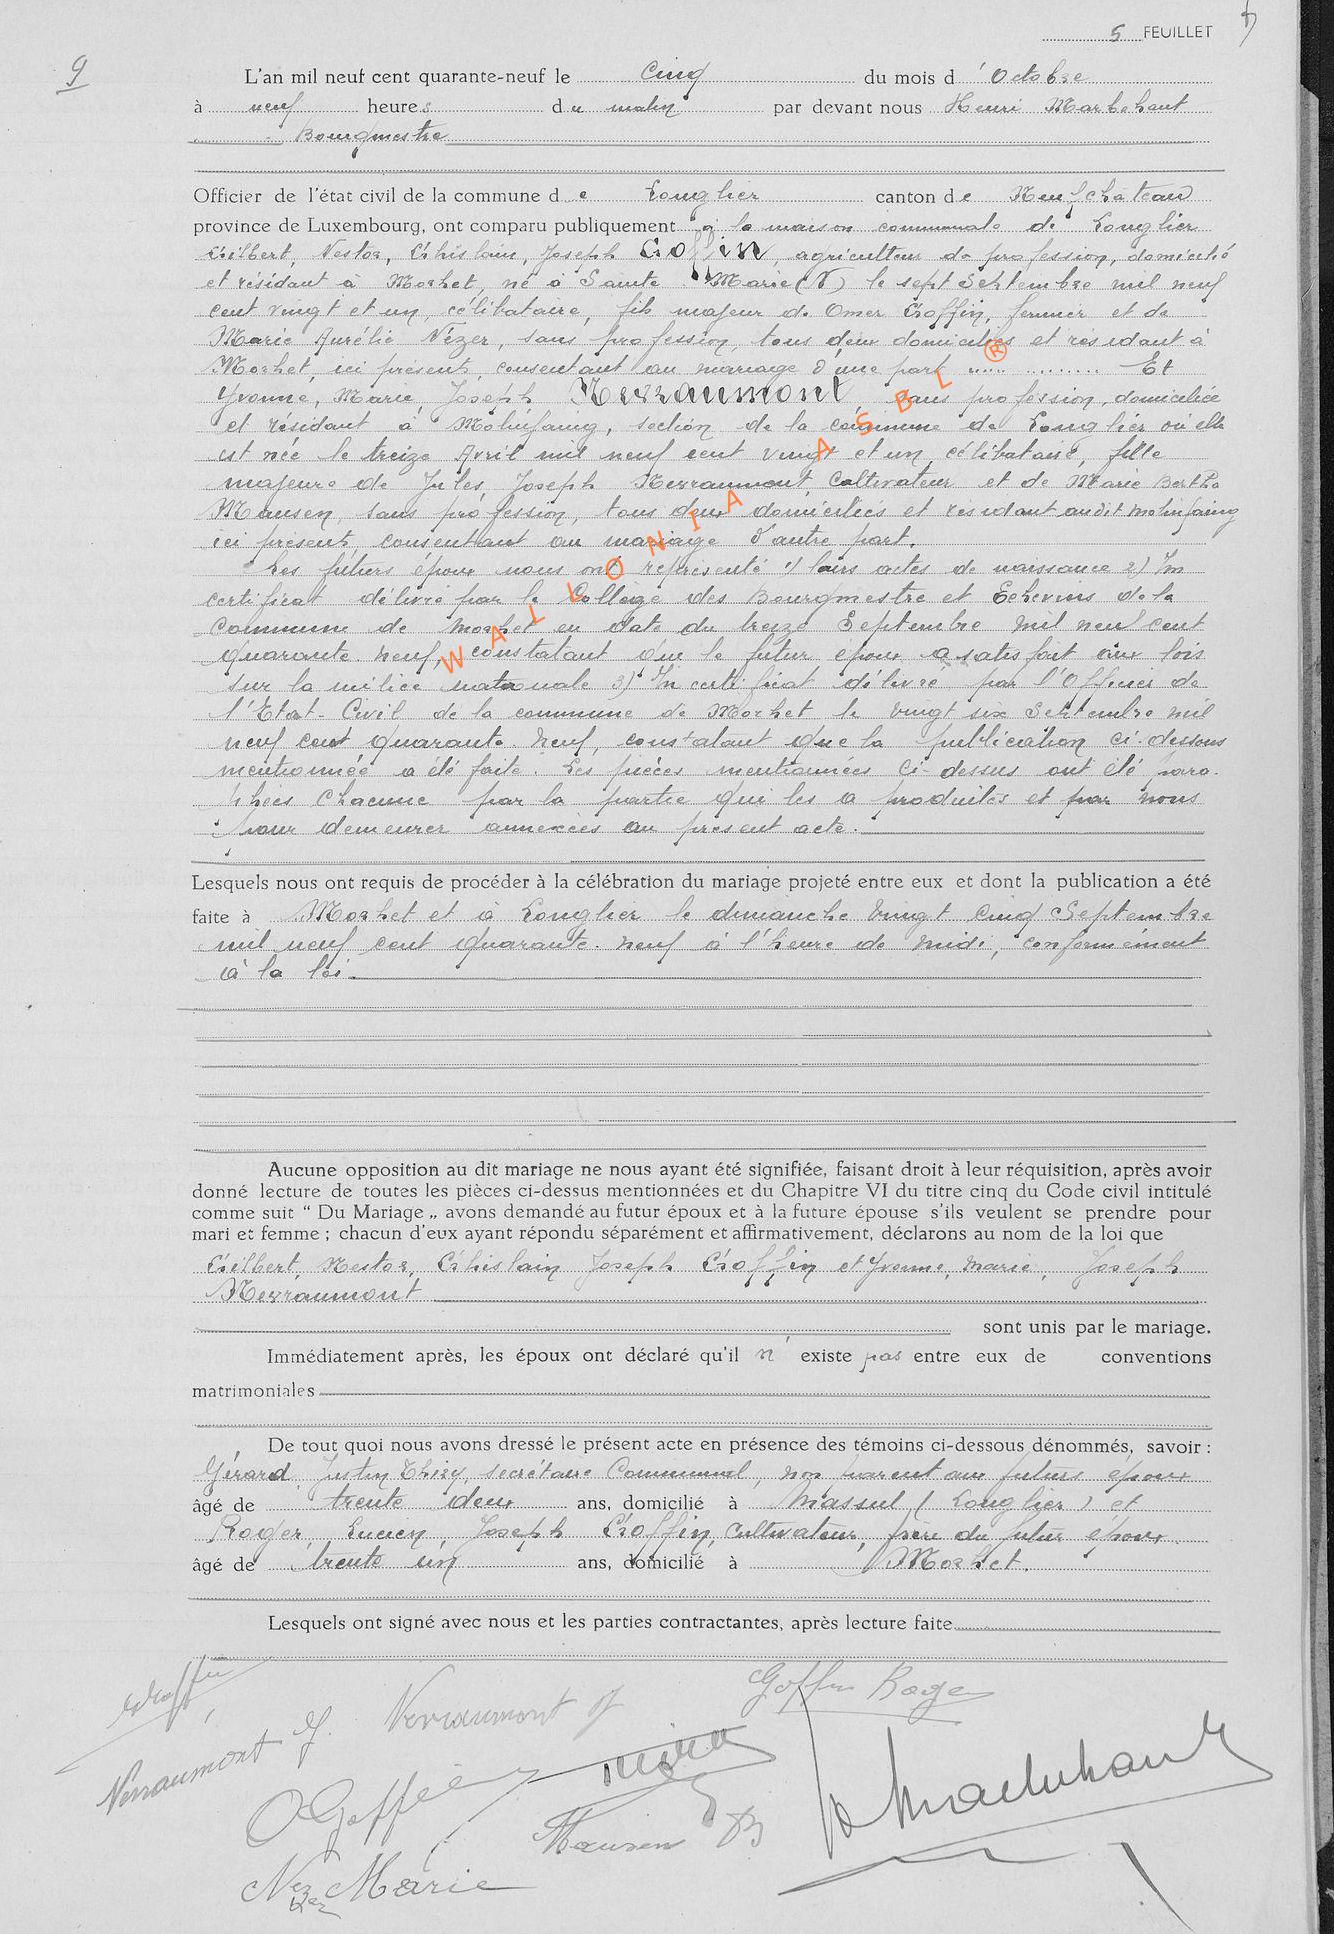 5 FEUILLET
9
L'an mil neuf cent quarante-neuf le cinq du mois d'Octobre
à neuf heures du matin par devant nous Henri Marbehant
Bourgmestre
Officier de l'état civil de la commune de Longlier canton de Neufchateau
province de Luxembourg, ont comparu publiquement à la maison communale de Longlier
Gilbert, Nestor, Ghislain, Joseph Goffin, agriculteur de profession, domicilié
et résidant à Morhet, né à Sainte Marie (N) le sept Septembre mil neuf
cent vingt et un, célibataire, fils majeur de Omer Goffin, fermier et de
Marie Aurélie Nézer, sans profession, tous deux domiciliés et résidant à
Morhet, ici présents, consentant au mariage d'une part ..... ......... Et
Yvonne, Marie, Joseph Nerraumont, sans profession, domiciliée
et résidant à Molinfaing, section de la commune de Longlier où elle
est née le treize Avril mil neuf cent vingt et un, célibataire, fille
majeure de Jules, Joseph Nerraumont, Cultivateur et de Marie Bertha
Mausen, sans profession, tous deux domiciliés et résidant audit Molinfaing
ici présents, consentant au mariage d'autre part.
Les futurs époux nous ont représenté 1) leurs actes de naissance 2) Un
certificat délivré par le Collège des Bourgmestre et Echevins de la
Commune de Morhet en date du treize Septembre mil neuf cent
quarante-neuf, constatant que le futur époux a satisfait aux lois
sur la milice nationale 3) Un certificat délivré par l'Officier de
l'Etat-Civil de la commune de Morhet le vingt six Septembre mil
neuf cent quarante-neuf, constatant que la publication ci-dessous
mentionnée a été faite. Les pièces mentionnées ci-dessus ont été para-
phées chacune par la partie qui les a produites et par nous
pour demeurer annexées au présent acte.
Lesquels nous ont requis de procéder à la célébration du mariage projeté entre eux et dont la publication a été
faite à Morhet et à Longlier le dimanche vingt cinq Septembre
mil neuf cent quarante-neuf à l'heure de midi, conformément
à la loi.
Aucune opposition au dit mariage ne nous ayant été signifiée, faisant droit à leur réquisition, après avoir
donné lecture de toutes les pièces ci-dessus mentionnées et du Chapitre VI du titre cinq du Code civil intitulé
comme suit “ Du Mariage „ avons demandé au futur époux et à la future épouse s'ils veulent se prendre pour
mari et femme ; chacun d'eux ayant répondu séparément et affirmativement, déclarons au nom de la loi que
Gilbert, Nestor, Ghislain Joseph Goffin et Yvonne, Marie, Joseph
Nerraumont
sont unis par le mariage.
Immédiatement après, les époux ont déclaré qu'il n'existe pas entre eux de conventions
matrimoniales
De tout quoi nous avons dressé le présent acte en présence des témoins ci-dessous dénommés, savoir :
Gérard Justin Thiry, secrétaire Communal, non parent aux futurs époux
âgé de trente deux ans, domicilié à Massul (Longlier) et
Roger, Lucien, Joseph Goffin, Cultivateur, frère du futur époux
âgé de trente un ans, domicilié à Morhet.
Lesquels ont signé avec nous et les parties contractantes, après lecture faite
Goffin Roger
Nerraumont J
Nerraumont Y.
O Goffin
Mausen B
H Marbehant
Nezer Marie
WALLONIA ASBL ®